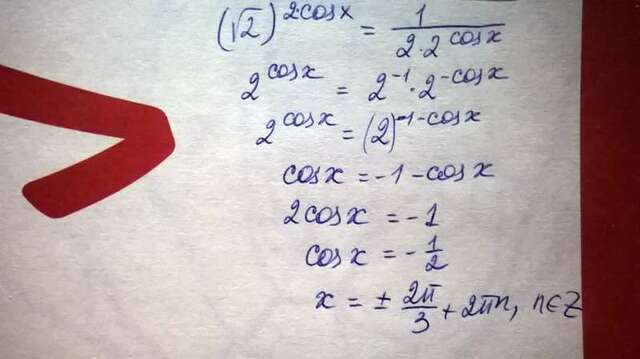 (√2)^{2·cosx} = \frac{1}{2·2^{cosx}}
2^{cosx} = 2^{-1}·2^{-cosx}
2^{cosx} = (2)^{-1-cosx}
cosx = -1 - cosx
2cosx = -1
cosx = -\frac{1}{2}
x = ± \frac{2π}{3} + 2πn, n∈Z